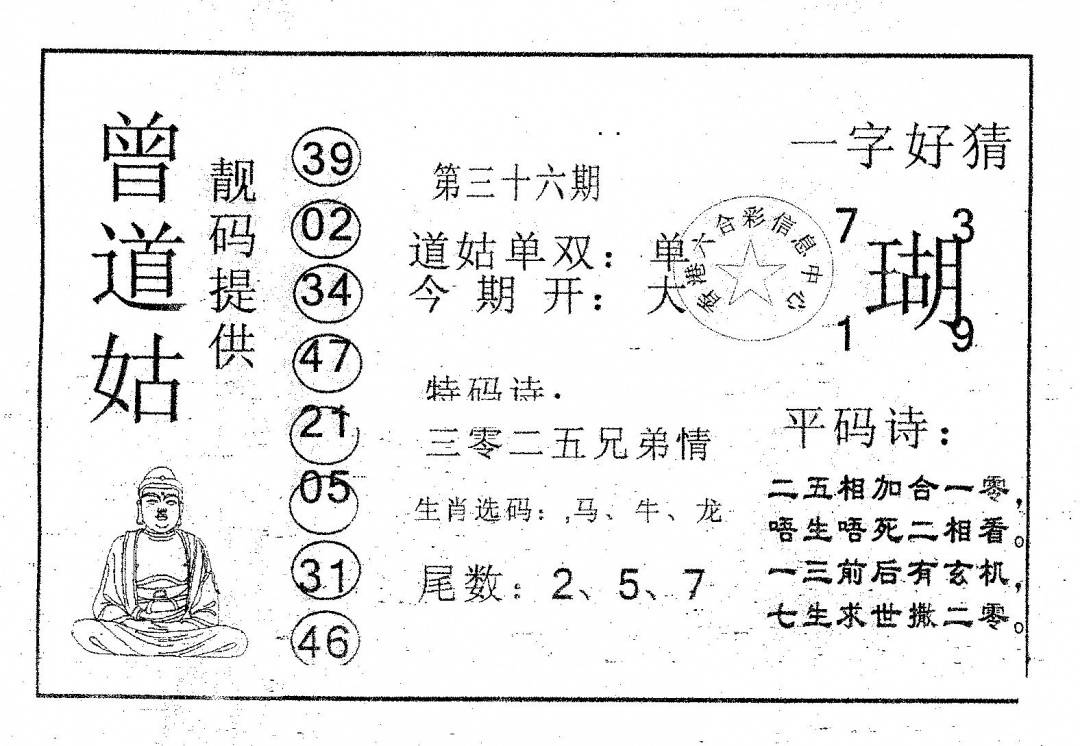 曾道姑
靓码提供
39
02
34
47
21
05
31
46
第三十六期
道姑单双：单
今期开：大
特码诗：
三零二五兄弟情
生肖选码：,马、牛、龙
尾数：2、5、7
香港六合彩信息中心
一字好猜
7 3
瑚
1 9
平码诗：
二五相加合一零，
唔生唔死二相看。
一三前后有玄机，
七生求世撒二零。